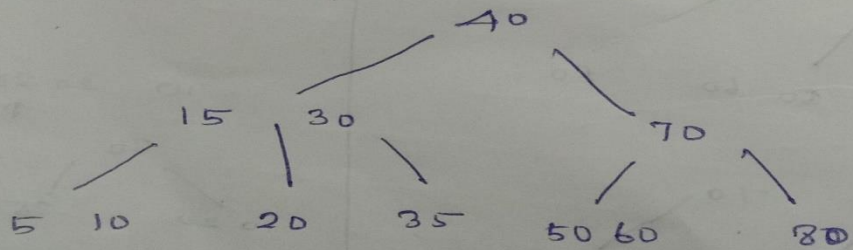 40
15 30 70
5 10 20 35 50 60 80